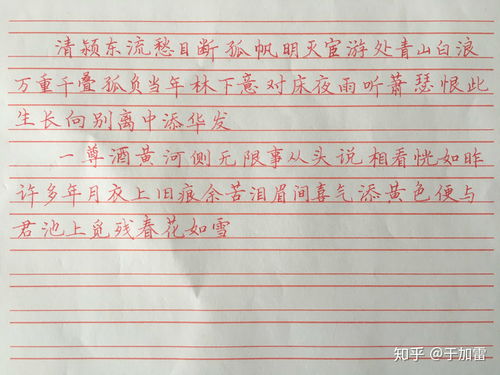 清颍东流愁目断孤帆明灭宦游处青山白浪
万重千叠孤负当年林下意对床夜雨听萧瑟恨此
生长向别离中添华发
一尊酒黄河侧无限事从头说相看恍如昨
许多年月衣上旧痕余苦泪眉间喜气添黄色便与
君池上觅残春花如雪
知乎 @于加雷